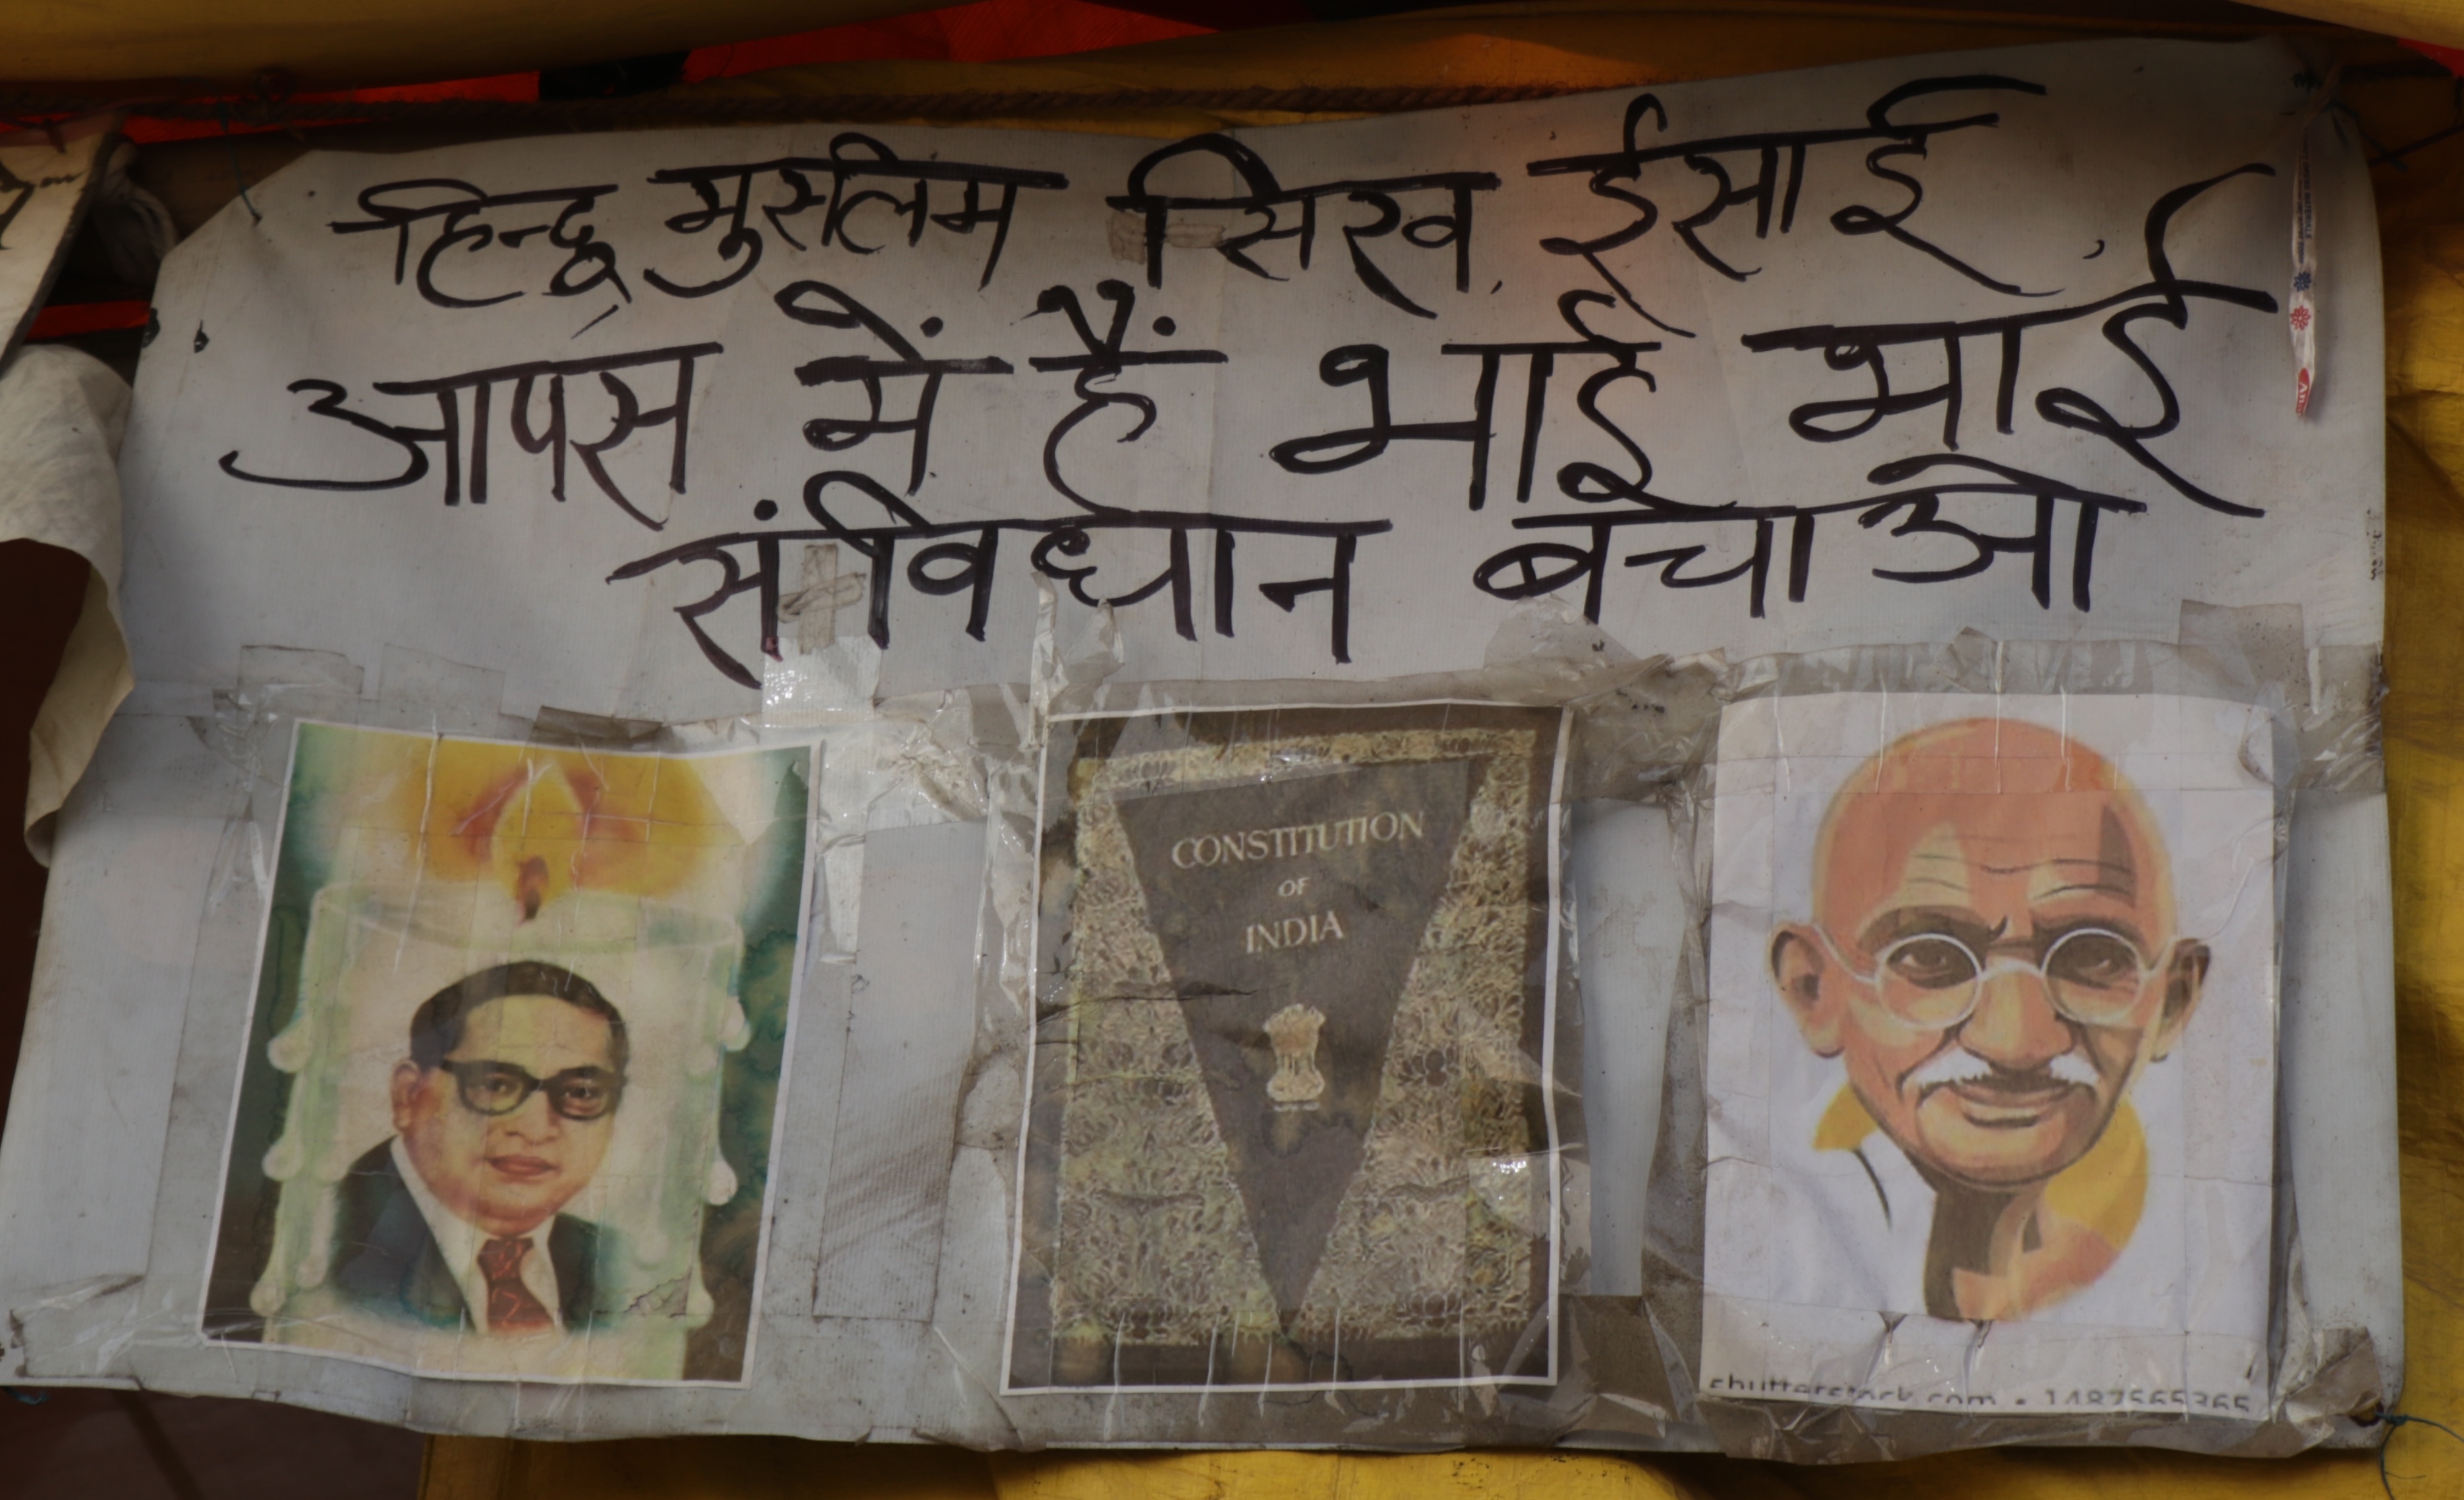 हिन्दू मुस्लिम सिख ईसाई
आपस में हैं भाई भाई
संविधान बचाओ
CONSTITUTION
OF
INDIA
shutterstock.com • 1487565365